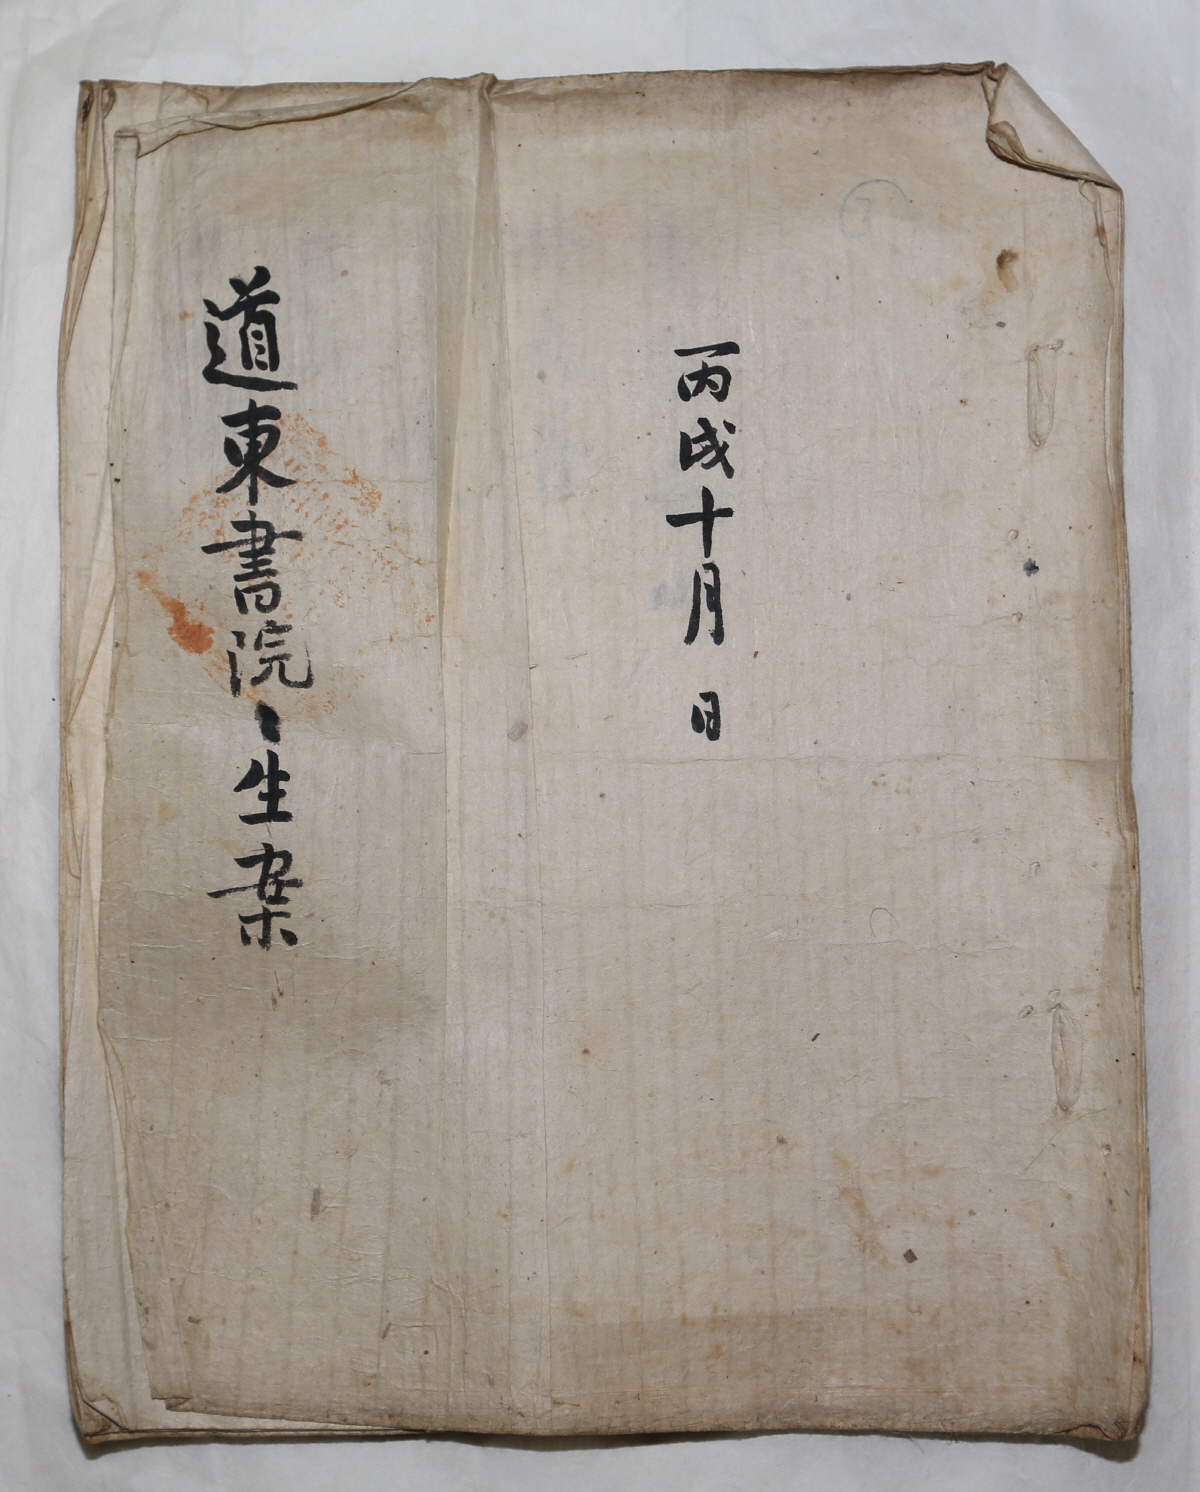 丙戌十月 日
道東書院〻生案